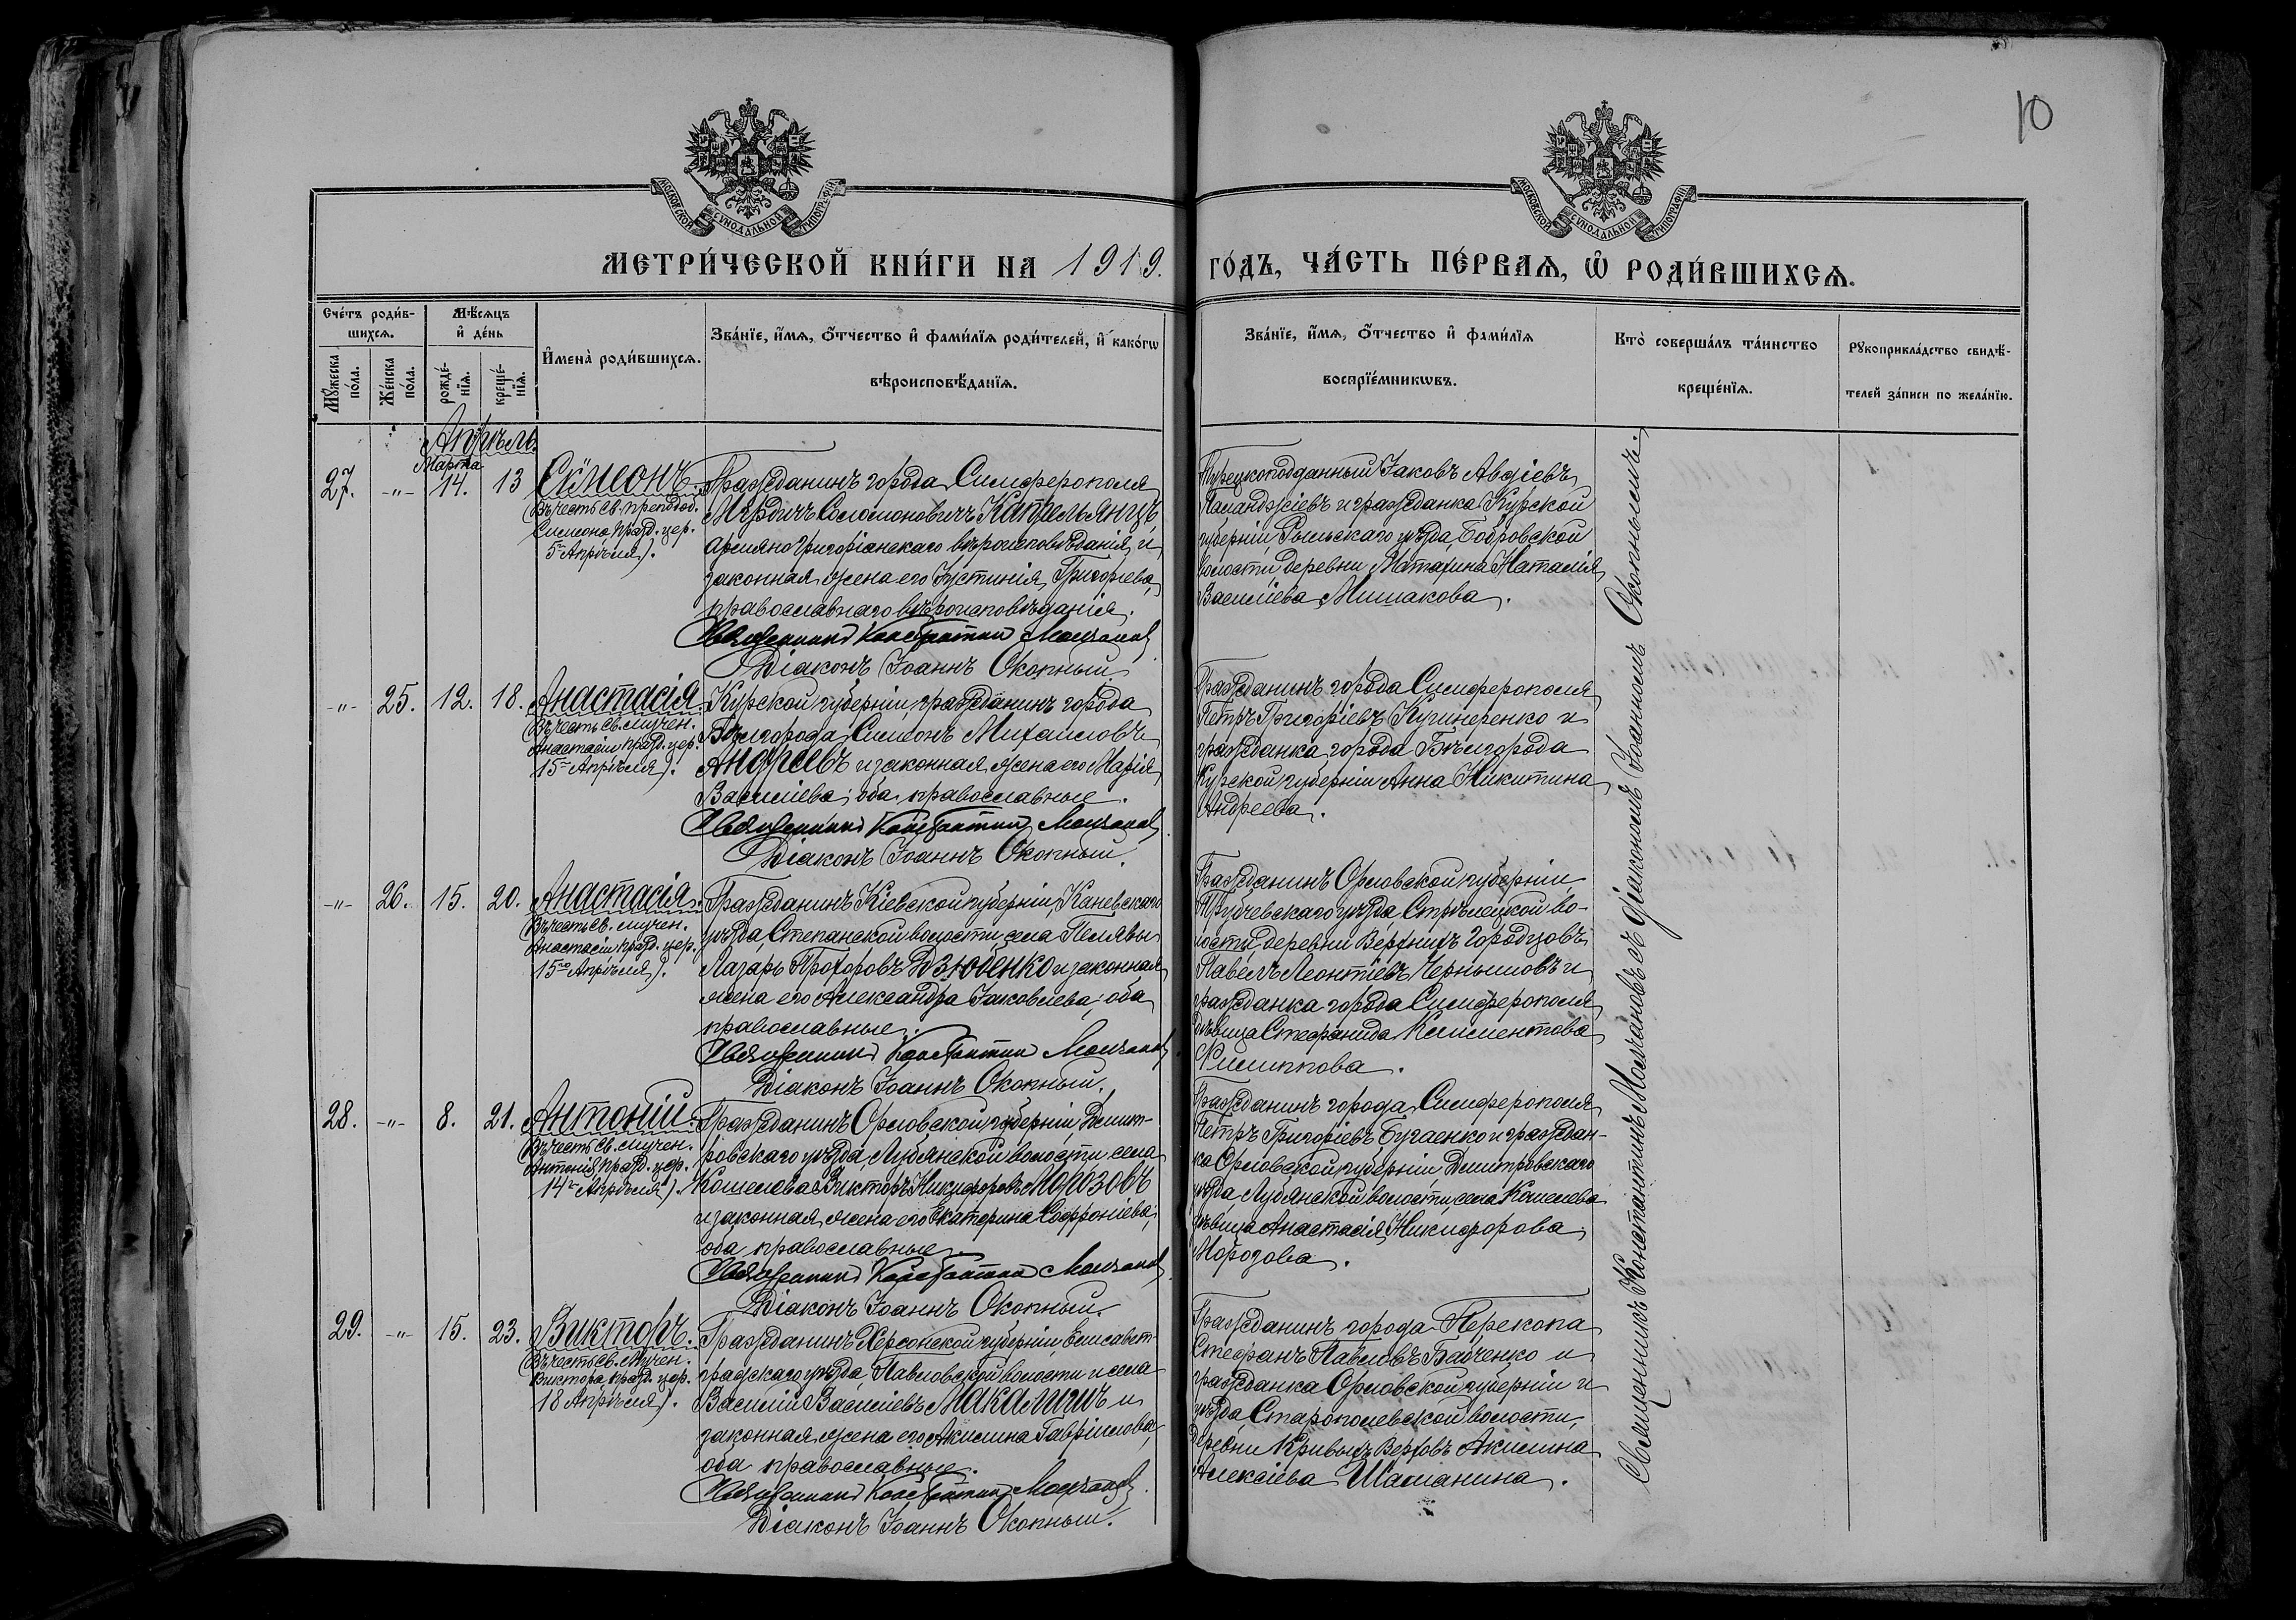 10
МОСКОВСКОЙ СѴНОДАЛЬНОЙ ТИПОГРАФІИ
МОСКОВСКОЙ СѴНОДАЛЬНОЙ ТИПОГРАФІИ
МЕТРИ́ЧЕСКОЙ КНИ́ГИ НА 1919.
ГО́ДЪ, ЧА́СТЬ ПЕ́РВАѦ, Ѽ РОДИ́ВШИХСѦ.
Сче́тъ роди́в-
шихсѧ.
Мѣ́сѧцъ
и҆ де́нь
Мꙋ́жеска по́ла.
Же́нска по́ла.
рожде́-
нїѧ.
креще́-
нїѧ.
И҆мена̀ роди́вшихсѧ.
Зва́нїе, и҆́мѧ, ѻ҆́тчество и҆ фами́лїѧ роди́телей, и҆ како́гѡ
вѣроисповѣ́данїѧ.
Зва́нїе, и҆́мѧ, ѻ҆́тчество и҆ фами́лїѧ
воспрїе́мникѡвъ.
Кто̀ соверша́лъ та́инство
креще́нїѧ.
Рꙋкоприкла́дство свидѣ́-
телей за́писи по жела́нїю.
Апрѣль.
Марта
27. -"- 14. 13 Сѵмеонъ.
(Въ честь св. преподоб.
Симеона, празд. цер.
5го Апрѣля).
Гражданинъ города Симферополя
Мердичъ Соломоновичъ Капрельянцъ,
армяно-григоріанскаго вѣроисповѣданія, и
законная жена его Іустинія Григорьева,
православнаго вѣроисповѣданія.
Священникъ Константинъ Молчановъ
Діаконъ Іоаннъ Окопный.
Турецкоподданный Іаковъ Авдіевъ
Паланджіевъ и гражданка Курской
губерніи, Рыльскаго уѣзда, Бобровской
волости, деревни Матахина Наталія
Василіева Мишакова.
-"- 25. 12. 18. Анастасія.
(Въ честь св. мучен.
Анастасіи, празд. цер.
15го Апрѣля).
Курской губерніи, гражданинъ города
Бѣлгорода Симеонъ Михаиловъ
Андреевъ и законная жена его Марія
Василіева, оба православные.
Священникъ Константинъ Молчановъ
Діаконъ Іоаннъ Окопный.
Гражданинъ города Симферополя
Петръ Григоріевъ Кушнеренко и
гражданка города Бѣлгорода
Курской губерніи Анна Никитина
Андреева.
-"- 26. 15. 20. Анастасія.
(Въ честь св. мучен.
Анастасіи, празд. цер.
15го Апрѣля).
Гражданинъ Кіевской губерніи, Каневскаго
уѣзда, Степанской волости, села Пелявы
Лазарь Прохоровъ Дзюбенко и законная
жена его Александра Іаковлева, оба
православные.
Священникъ Константинъ Молчановъ
Діаконъ Іоаннъ Окопный.
Гражданинъ Орловской губерніи,
Трубчевскаго уѣзда, Стрѣлецкой во-
лости, деревни Верхнихъ Городцовъ
Павелъ Леонтіевъ Чернышовъ и
гражданка города Симферополя
дѣвица Стефанида Климентова
Филиппова.
28. -"- 8. 21. Антоній.
(Въ честь св. мучен.
Антонія, празд. цер.
14го Апрѣля).
Гражданинъ Орловской губерніи, Дмит-
ровскаго уѣзда, Лубянской волости, села
Кошелева Викторъ Никифоровъ Морозовъ
и законная жена его Екатерина Софроніева,
оба православные.
Священникъ Константинъ Молчановъ
Діаконъ Іоаннъ Окопный.
Гражданинъ города Симферополя
Петръ Григоріевъ Бугаенко и граждан-
ка Орловской губерніи Дмитровскаго
уѣзда, Лубянской волости, села Кошелева
дѣвица Анастасія Никифорова
Морозова.
29. -"- 15. 23. Викторъ.
(Въ честь св. мучен.
Виктора, празд. цер.
18 Апрѣля).
Гражданинъ Херсонской губерніи, Елисавет-
градскаго уѣзда, Павловской волости и села
Василій Василіевъ Макалишъ и
законная жена его Акилина Гавріилова,
оба православные.
Священникъ Константинъ Молчановъ
Діаконъ Іоаннъ Окопный.
Гражданинъ города Перекопа
Стефанъ Павловъ Бабченко и
гражданка Орловской губерніи и
уѣзда, Старопольевской волости,
деревни Кривыхъ Верховъ Акилина
Алексіева Шаманина.
Священникъ Константинъ Молчановъ съ діакономъ Іоанномъ Окопнымъ.